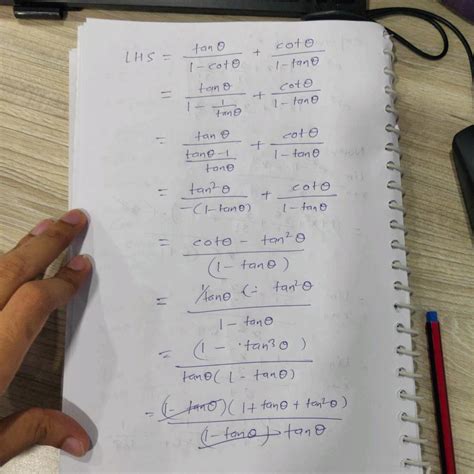 LHS = tanθ/(1-cotθ) + cotθ/(1-tanθ)
= tanθ/(1-1/tanθ) + cotθ/(1-tanθ)
= tanθ/((tanθ-1)/tanθ) + cotθ/(1-tanθ)
= tan²θ/(-(1-tanθ)) + cotθ/(1-tanθ)
= (cotθ - tan²θ)/(1-tanθ)
= (1/tanθ - tan²θ)/(1-tanθ)
= (1 - tan³θ)/(tanθ(1-tanθ))
= (1-tanθ)(1+tanθ+tan²θ)/((1-tanθ)tanθ)